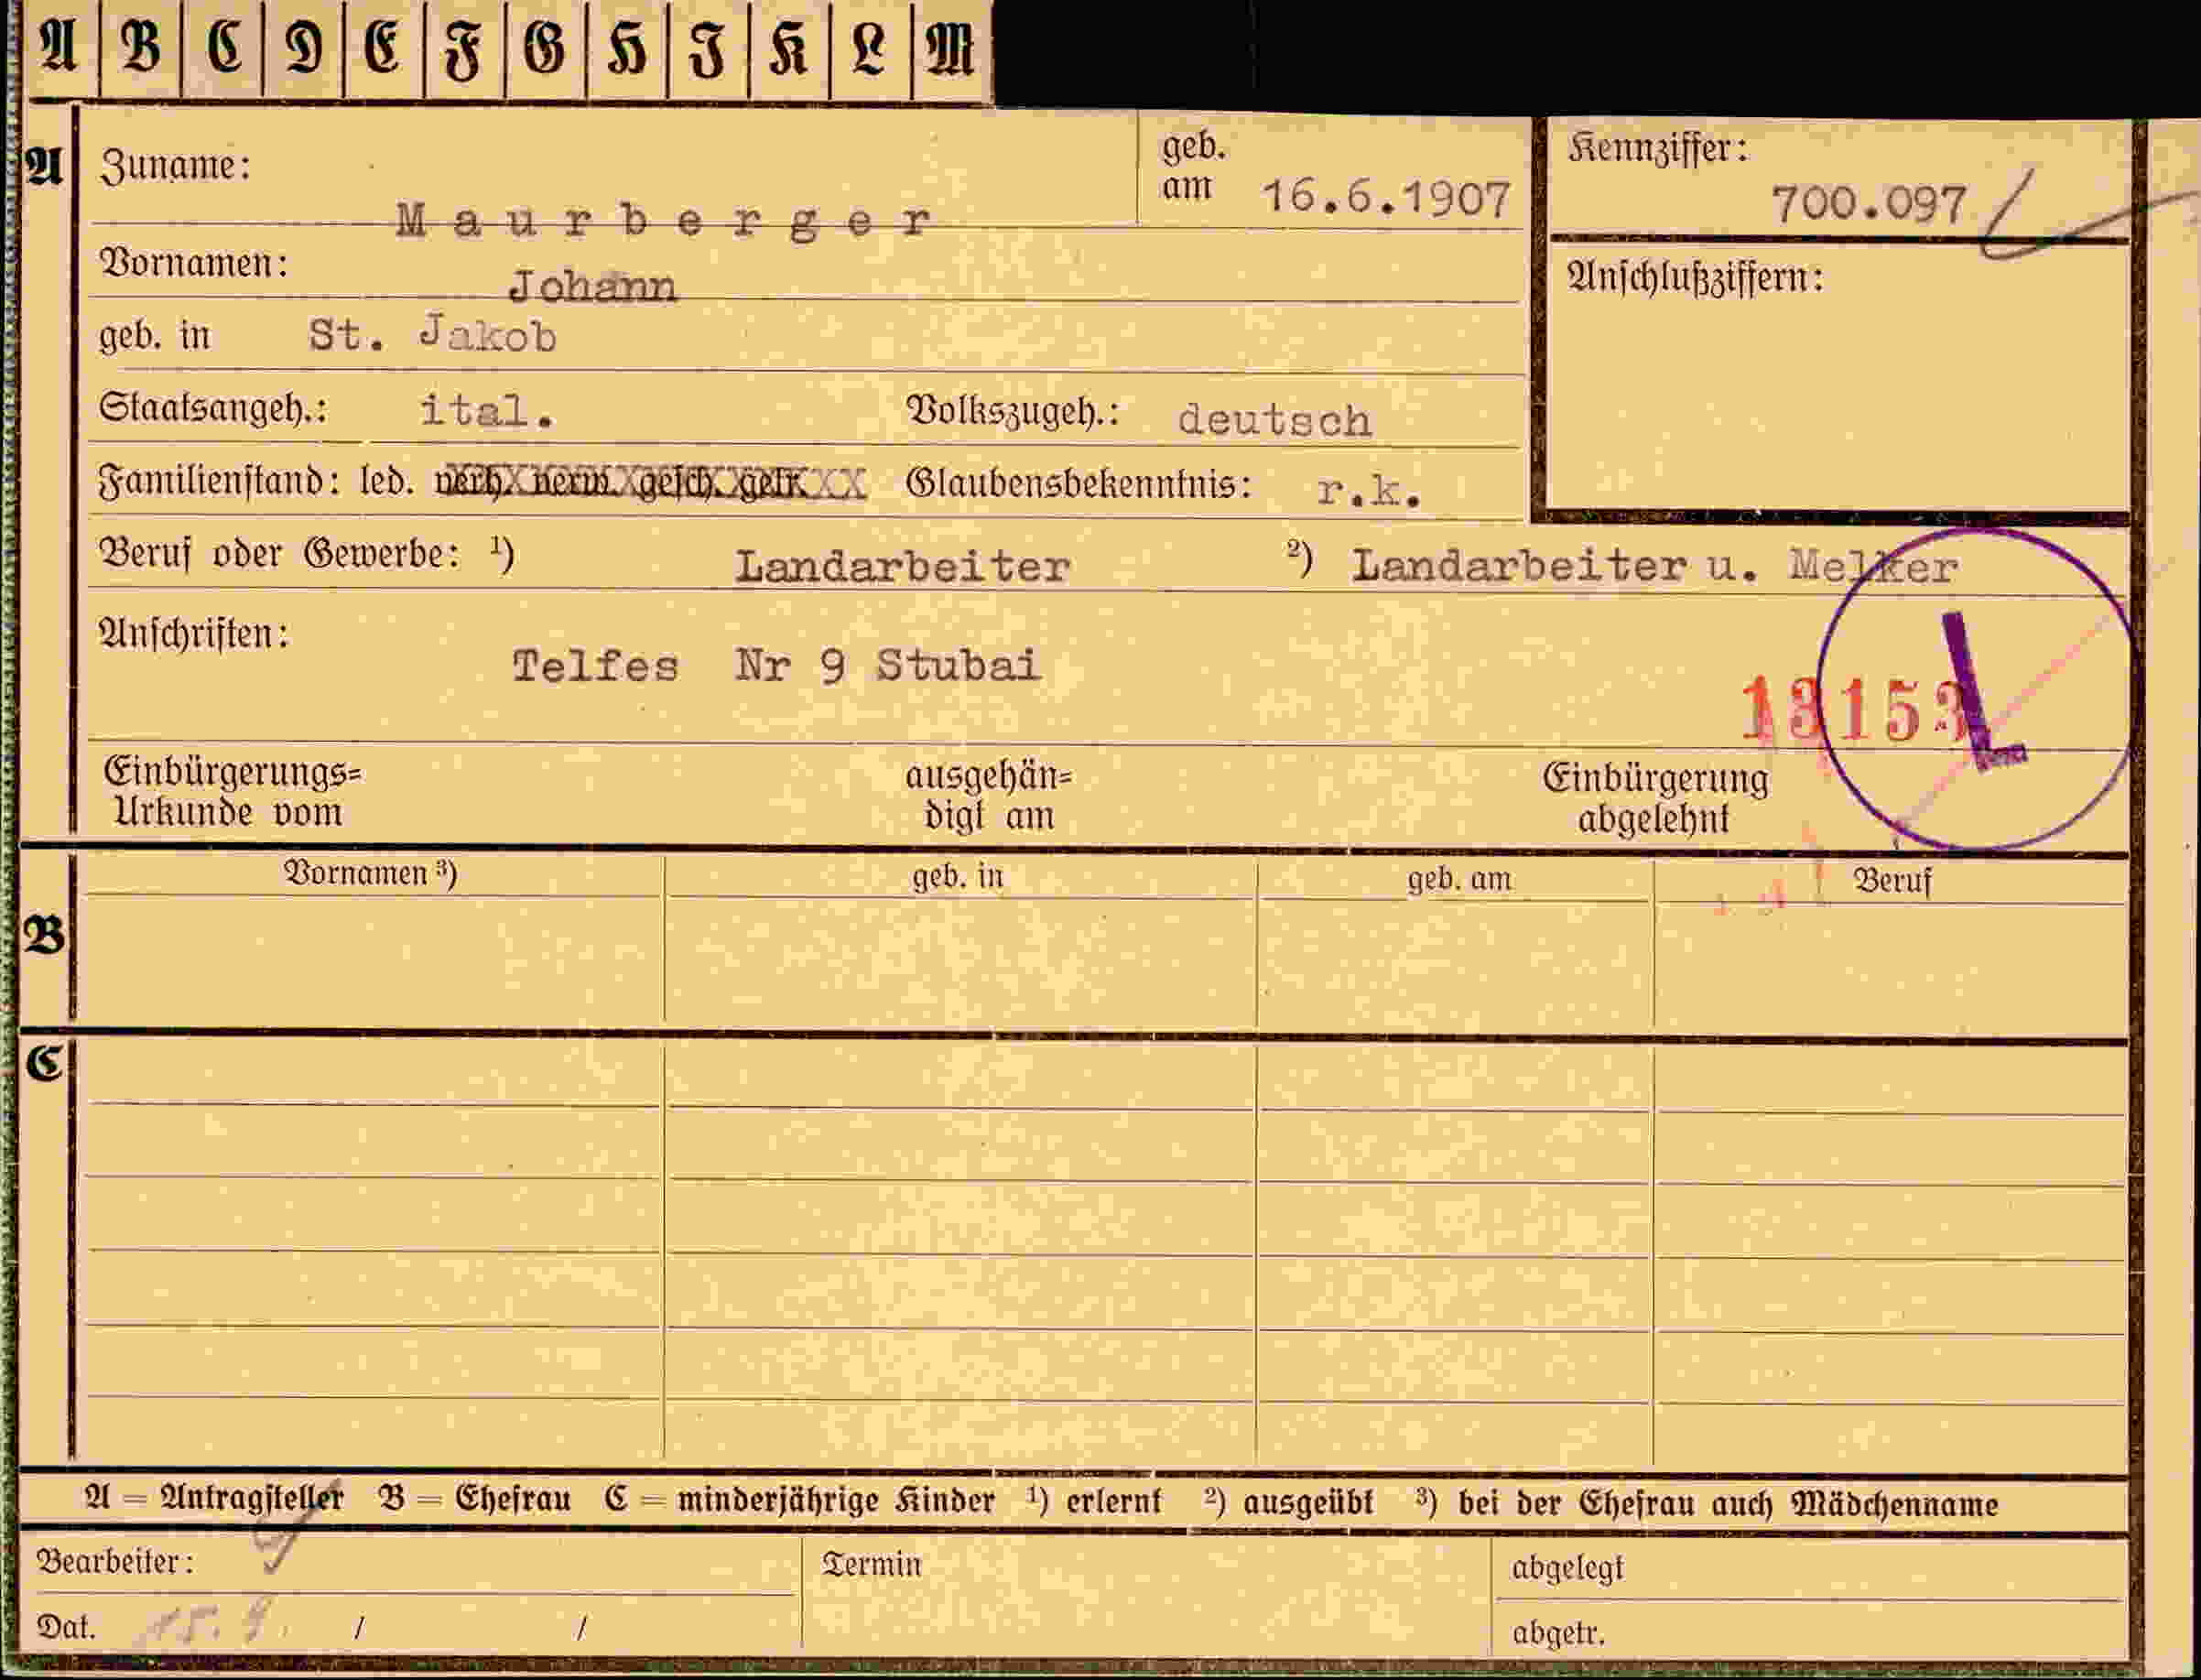 A B C D E F G H I K L M
A Zuname: Maurberger geb. am 16.6.1907 Kennziffer: 700.097
Vornamen: Johann Anschlußziffern:
geb. in St. Jakob
Staatsangeh.: ital. Volkszugeh.: deutsch
Familienstand: led. verh. verw. gesch. getr. XX Glaubensbekenntnis: r.k.
Beruf oder Gewerbe: ¹) Landarbeiter ²) Landarbeiter u. Melker
Anschriften:
Telfes Nr 9 Stubai
13153 L
Einbürgerungs= ausgehän= Einbürgerung
Urkunde vom digt am abgelehnt
B Vornamen ³) geb. in geb. am Beruf
C
A = Antragsteller B = Ehefrau C = minderjährige Kinder ¹) erlernt ²) ausgeübt ³) bei der Ehefrau auch Mädchenname
Bearbeiter: Termin abgelegt
Dat. 15.9. / / abgetr.